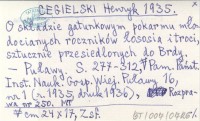 CEGIELSKI Henryk 1935.
O składzie gatunkowym pokarmu mło-
docianych roczników łososia i troci,
sztucznie przesiedlonych do Brdy.
– Puławy, S. 277-312, Pam. Państ.
Inst. Nauk. Gosp. Wiej. Puławy, 16,
nr 1 (r. 1935, druk 1936), Rozpra-
wa nr 250.
cm 24 x 17, Zsf.